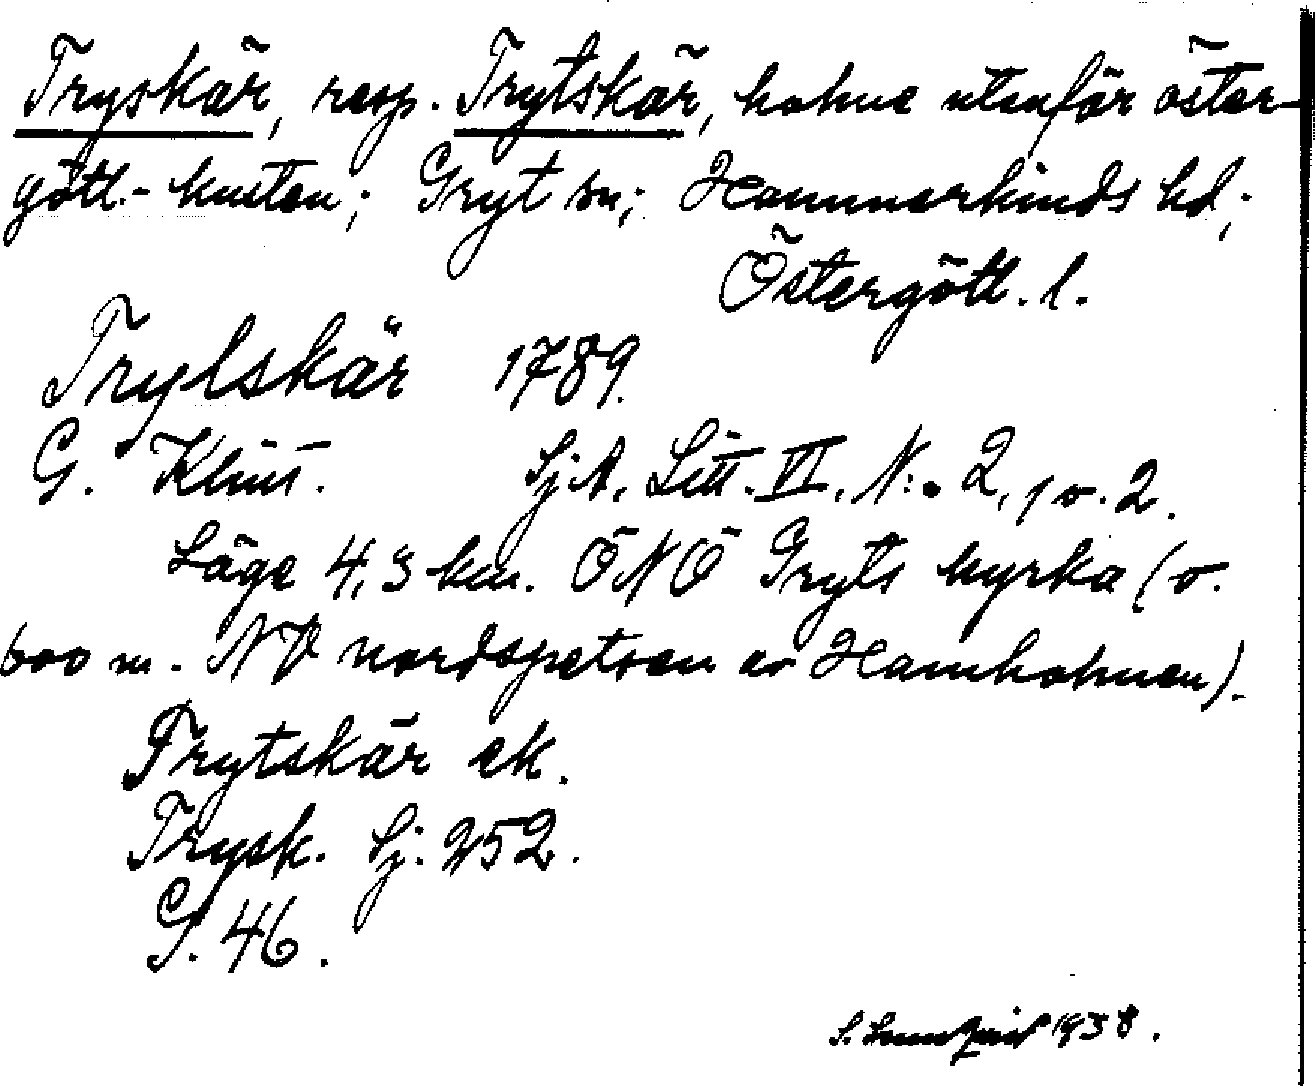 Tryskär, resp. Trytskär, holme utanför öster-
götl.- kusten; Gryt sn; Hammarkinds hd;
Östergötl. l.
Trylskär 1789.
G. Klint. SjA. Litt. VI, N:o 2, 1 o. 2.
Läge 4,3 km. ÖNÖ Gryts kyrka (o.
600 m. NV nordspetsen av Hamnholmen).
Trytskär ek.
Trysk. Sj. 252.
G. 46.
1938.